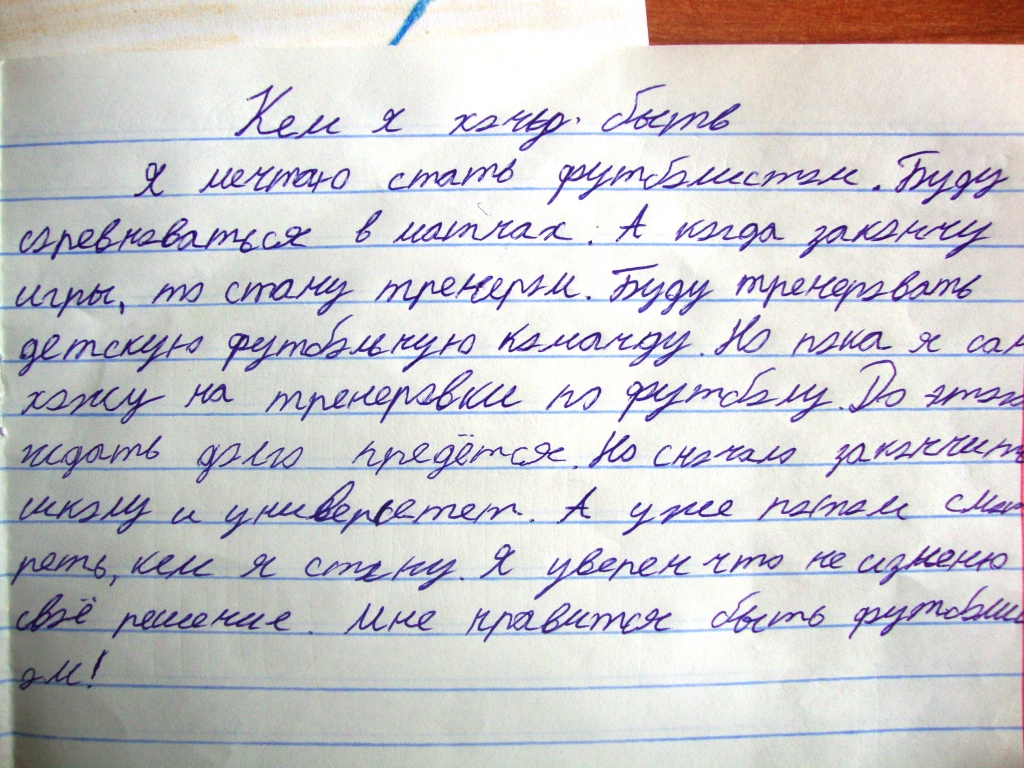 Кем я хочу быть
Я мечтаю стать футболистом. Буду
соревноваться в матчах. А когда закончу
игры, то стану тренером. Буду тренеровать
детскую футбольную команду. Но пока я сам
хожу на тренеровки по футболу. До этого
ждать долго предётся. Но сначало закончить
школу и университет. А уже потом смот
реть, кем я стану. Я уверен что не изменю
своё решение. Мне нравится быть футболист
ом!